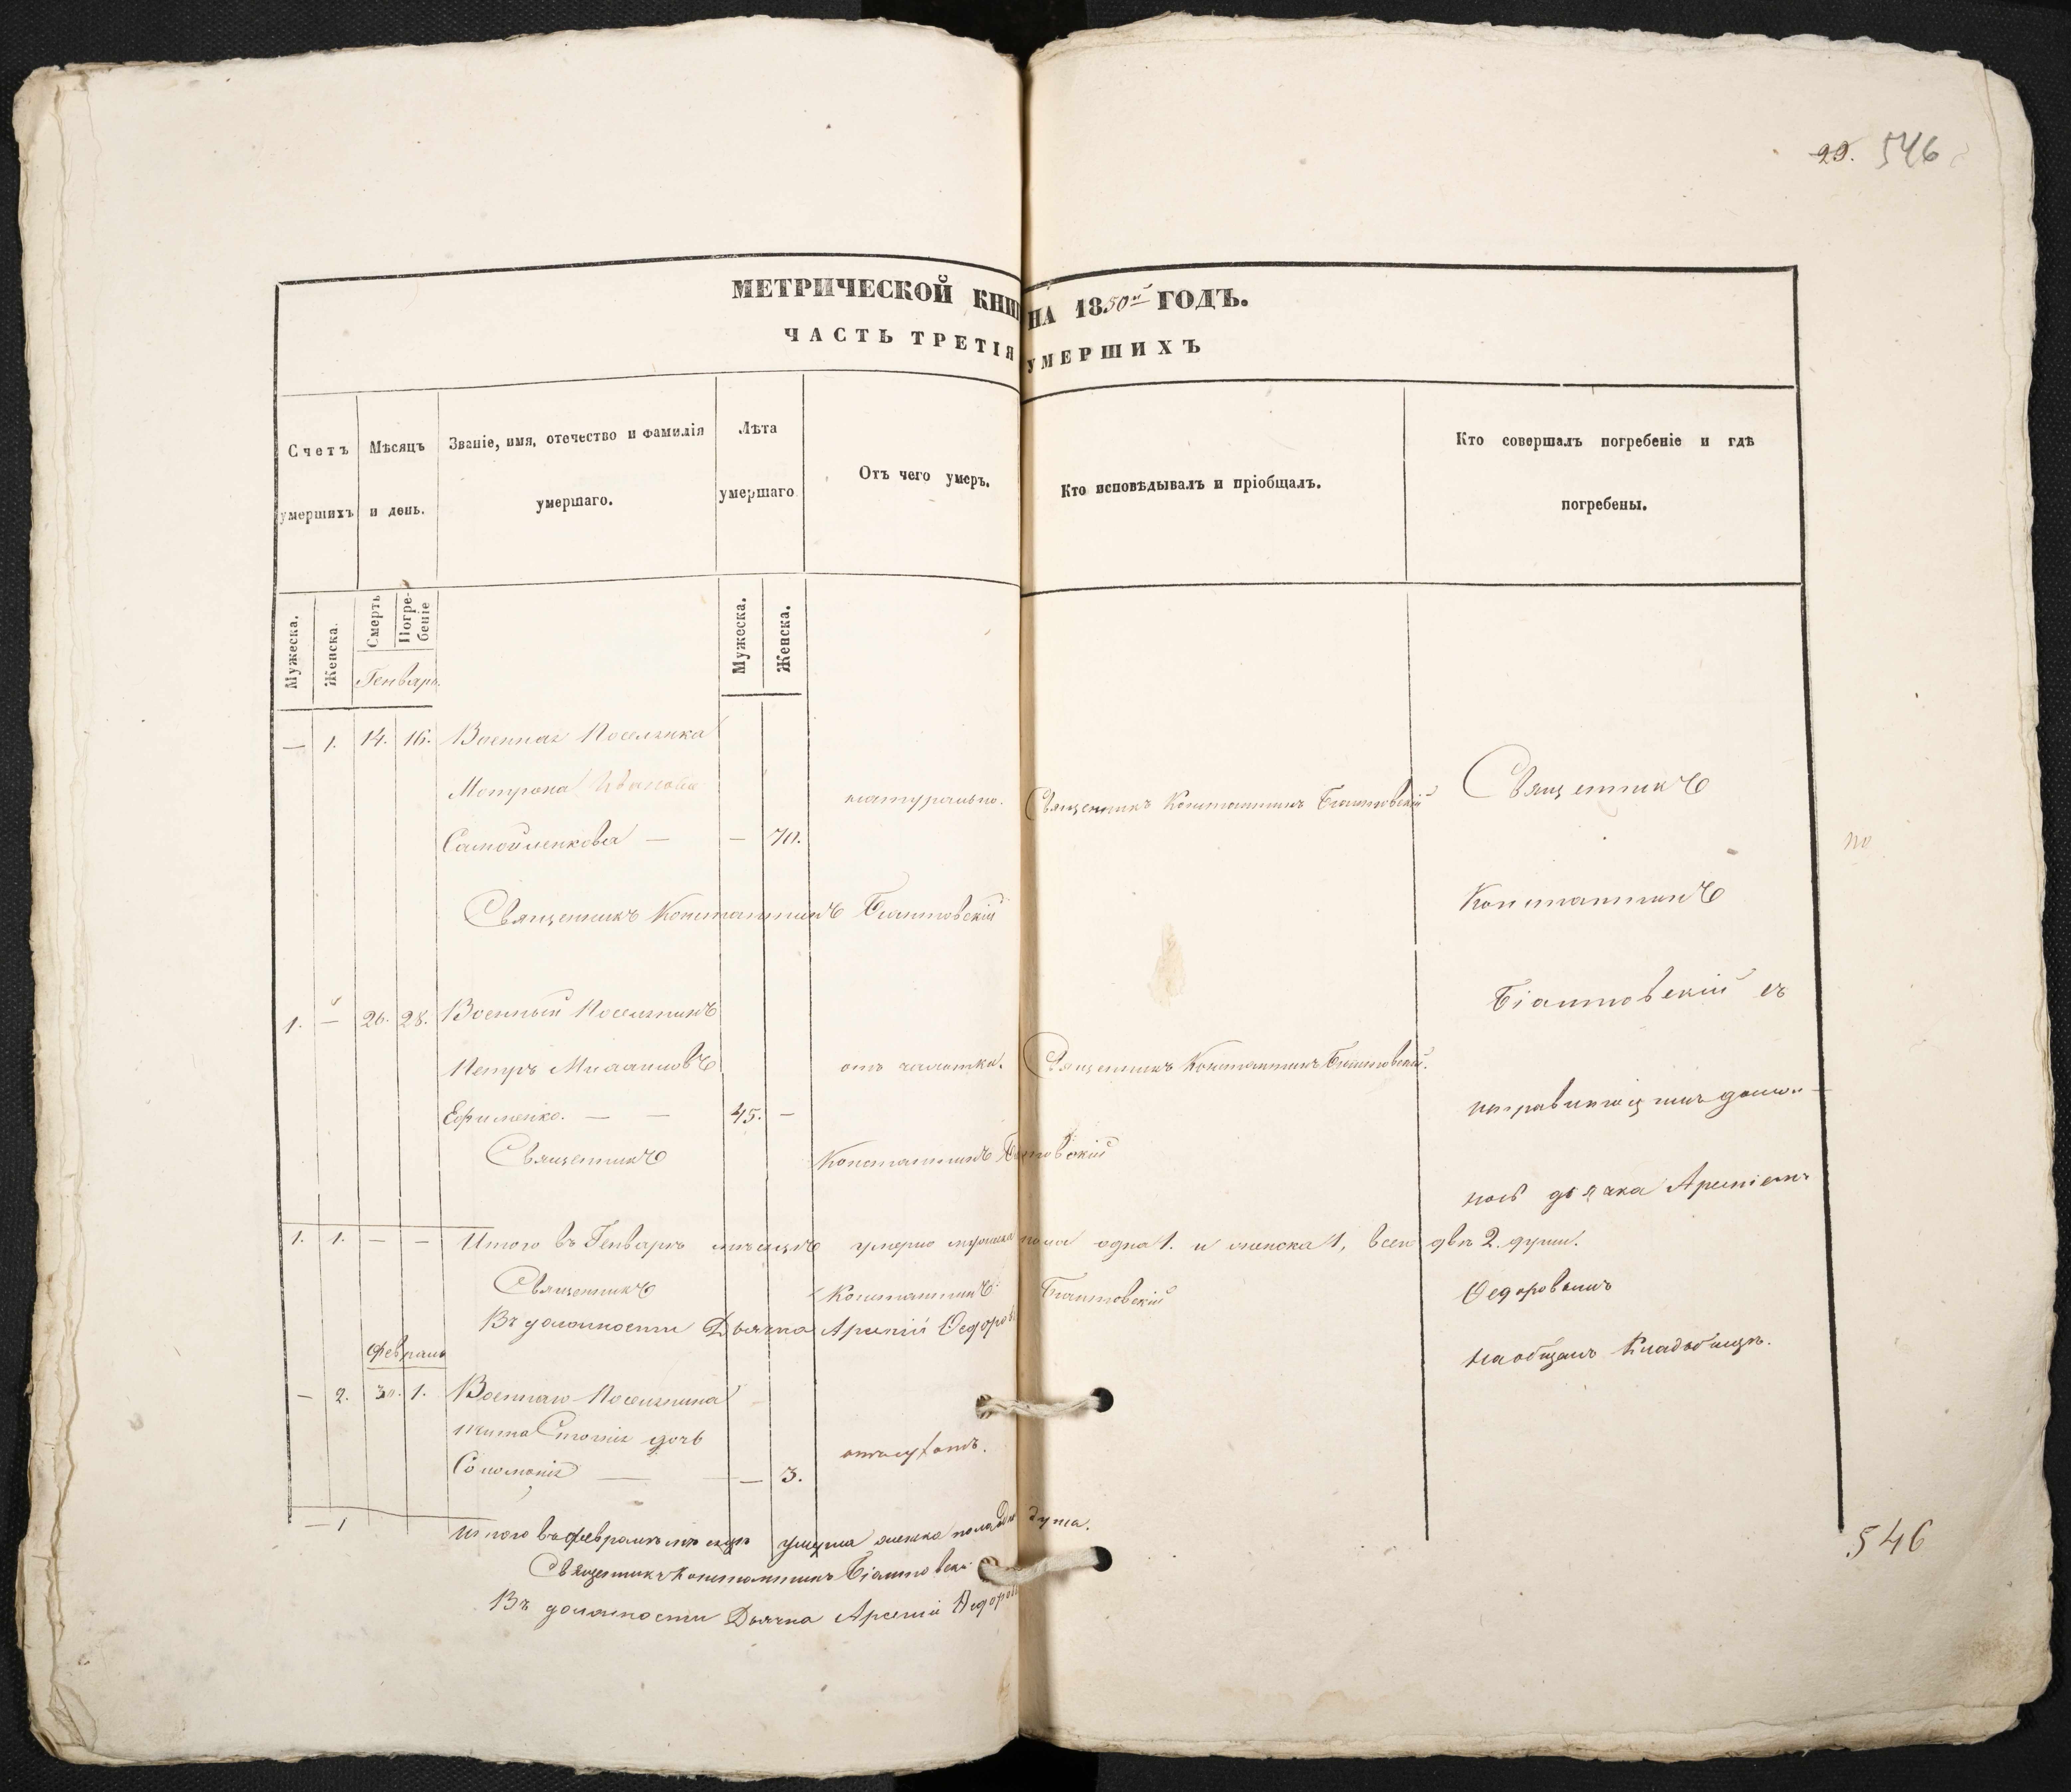 29. 546
МЕТРИЧЕСКОЙ КНИ НА 1850й ГОДЪ.
ЧАСТЬ ТРЕТІЯ УМЕРШИХЪ
Счетъ умершихъ
Мѣсяцъ и день.
Званіе, имя, отечество и фамилія умершаго.
Лѣта умершаго
Отъ чего умеръ.
Кто исповѣдывалъ и пріобщалъ.
Кто совершалъ погребеніе и гдѣ погребены.
Мужеска.
Женска.
Смерть
Погребеніе
Мужеска.
Женска.
Генварь.
— 1. 14. 16. Военная Поселянка
Мотрона Иванова
натурально. Священникъ Константинъ
Самойленкова — — 70.
Священникъ Константинъ
1. — 26. 28. Военный Поселянинъ
Петръ
отъ чахотки. Священникъ Константинъ
Ефименко. — — 45. —
Священникъ Константинъ
1. 1. — — Итого въ Генварѣ мѣсяцѣ умерло мужеска пола одна 1. и женска 1, всего двѣ 2. души.
Священникъ Константинъ
Въ должности Дьячка Арсеній Ѳедоровъ
Февраль
— 2. 30. 1. Военнаго Поселянина
дочь
Соломонія — — 3.
— 1 Итого въ Февралѣ мѣсяцѣ умерла женска пола одна душа.
Священникъ Константинъ
Въ должности Дьячка Арсеній Ѳедоровъ
Священникъ
Константинъ
съ
исправляющимъ должность
дьячка Арсеніемъ
Ѳедоровымъ
на общемъ Кладбищѣ.
546